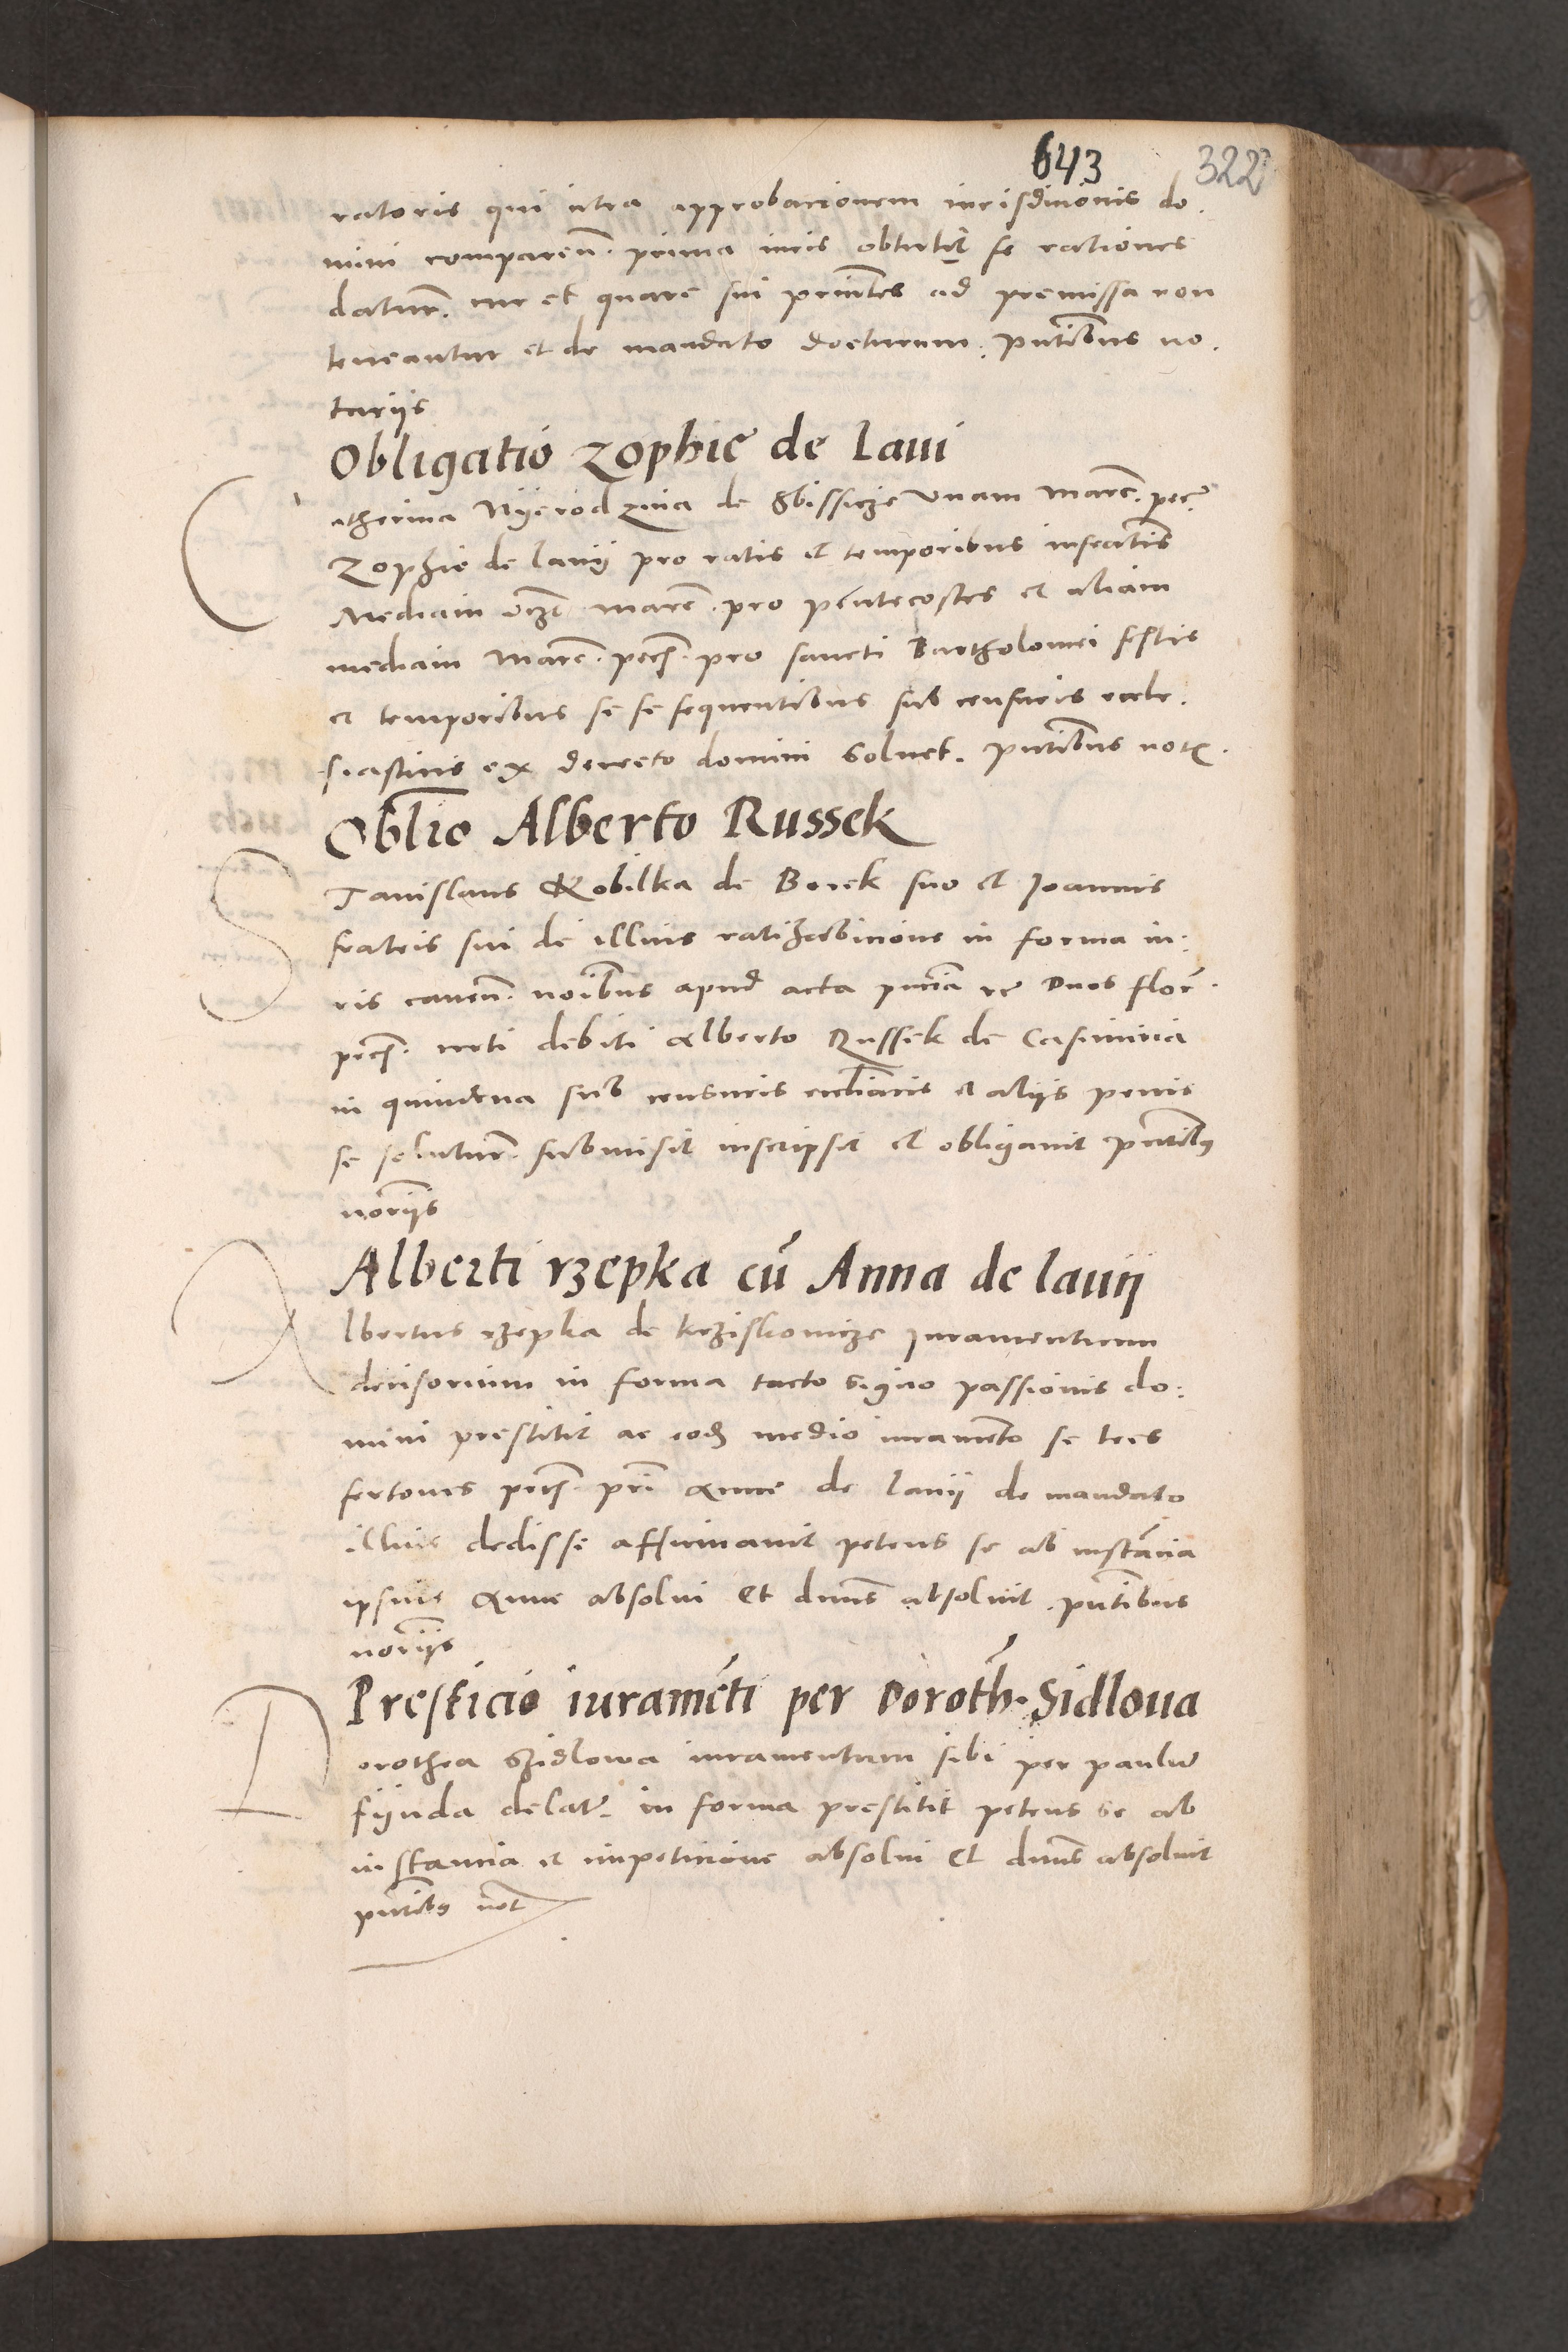 643 322
ratoris qui citra approbacionem iurisdicionis do.
mini comparen̄. prima iuris obtulit se rationes
daturū. cur et quare sui prin̄tes ad premissa non
teneantur et de mandato docturum. pn̄tibus no.
tariis
Obligatio Zophie de Laui
Catherina Nijerodzina de Gbissicze unam marc̄. pec̄.
Zophie de lanij pro ratis et temporibus infractis
Mediam vīz marc̄. pro pentecostes et aliam
mediam marc̄. pecͦ. pro sancti Bartholomei festis
et temporibus se se sequentibus sub censuris eccle.
siasticis ex decreto domini soluet. pn̄tibus notͦ.
Obl̄io Alberto Russek
Stanislaus Kobilka de Borek suo et Joannis
fratris sui de illius ratihabicione in forma iu.
ris cauen̄. no̅i̅bus apud acta pn̄cia re duos flor̄.
pecͦ. certi debiti Alberto Russek de Casimiria
in quindena sub censuris eccl̄iacis et aliis penis
se soluturū. submisit inscripsit et obligauit pn̄tibꝫ
no̅riis
Alberti rzepka cū Anna de lauij
Albertus rzepka de krziskowicze Juramentum
decisorium in forma tacto signo passionis do:
mini prestitit ac eodē medio iuramento se tres
fertones pecͦ. pn̄ Anne de lanij de mandato
illius dedisse affirmauit petens se ab instācia
ipsius Anne absolui Et dnūs absoluit. pn̄tibus
no̅riis
Presticio iuramēti per Doroth̄. Sidloua
Dorothea Szidlowa iuramentum sibi per paulū
fijnda delatū. in forma prestitit petens se ab
instancia et impeticione absolui Et dnūs absoluit
pn̄tibꝫ not̄